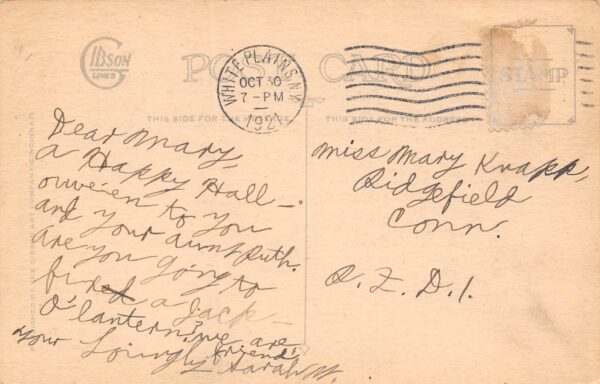 Gibson
LINES
POST CARD
WHITE PLAINS, N.Y.
OCT 30
7-PM
1921
STAMP
THIS SIDE FOR THE MESSAGE
THIS SIDE FOR THE ADDRESS
Dear Mary,
a Happy Hall-
owe'en to you
and your aunt Ruth.
are you going to
a Jack-
O'lantern? we are
your Lovingly friend
Sarah W.
Miss Mary Knapp,
Ridgefield
Conn.
R.F.D.1.